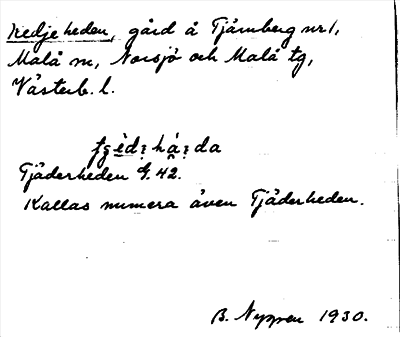 Kedjeheden, gård å Tjärnberg nr 1,
Malå sn, Norsjö och Malå tg,
Västerb. l.
Tjäderheden G. 42.
Kallas numera även Tjäderheden.
B. Nyman 1930.